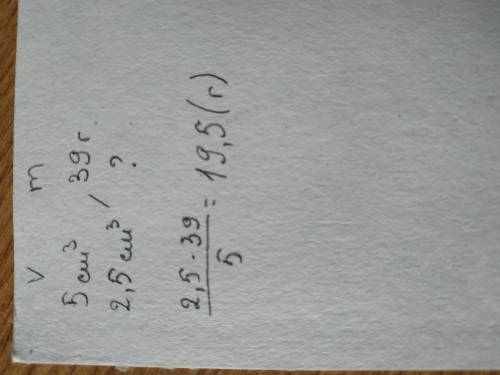 V m
5 см³ 39 г.
2,5 см³ / ?
2,5 · 39
5
= 19,5 (г)